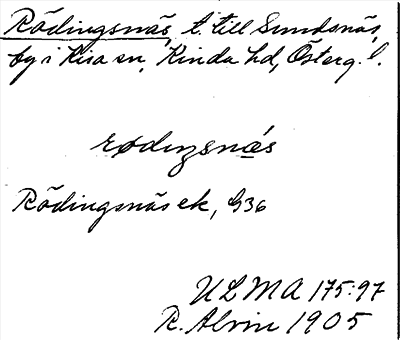 Rödingsnäs, t. till Sundsnäs,
by i Kisa sn, Kinda hd, Österg. l.
rødɪŋsnæ̀s
Rödingsnäs ek, G36
ULMA 175:97
R. Alvin 1905